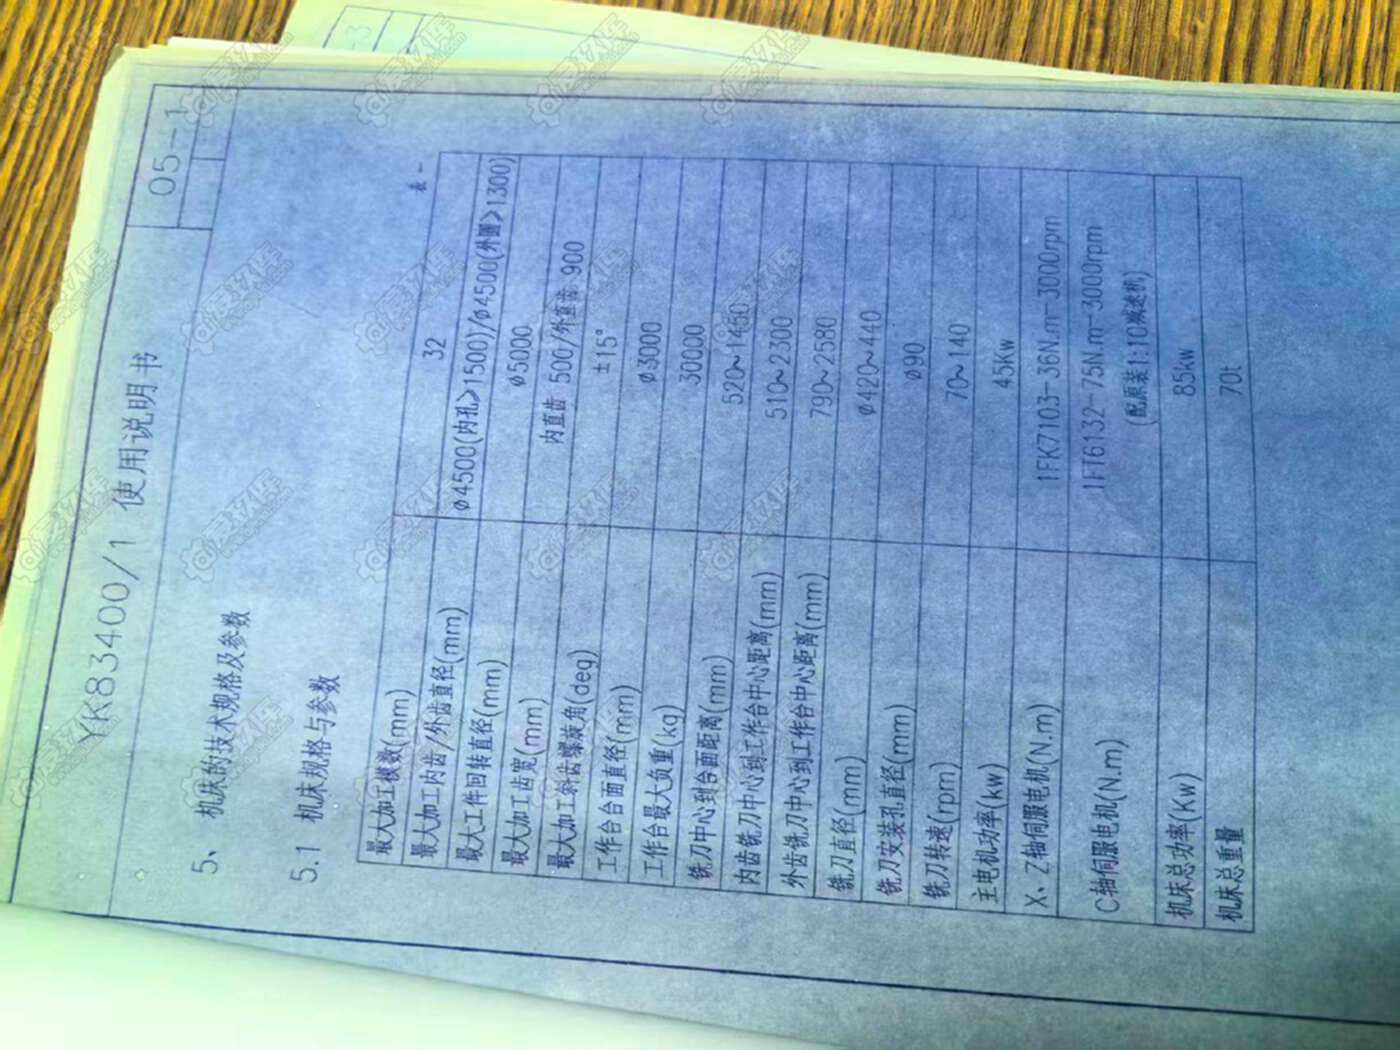 YK83400/1 使用说明书
05-1
5、 机床的技术规格及参数
5.1 机床规格与参数
表一
最大加工模数(mm) 32
最大加工内齿/外齿直径(mm) ø4500(内孔≥1500)/ø4500(外圆≥1300)
最大工件回转直径(mm) ø5000
最大加工齿宽(mm) 内直齿 500/外直齿 900
最大加工斜齿螺旋角(deg) ±15°
工作台台面直径(mm) ø3000
工作台最大负重(kg) 30000
铣刀中心到台面距离(mm) 520~1450
内齿铣刀中心到工作台中心距离(mm) 510~2300
外齿铣刀中心到工作台中心距离(mm) 790~2580
铣刀直径(mm) ø420~440
铣刀安装孔直径(mm) ø90
铣刀转速(rpm) 70~140
主电机功率(kw) 45Kw
X、Z轴伺服电机(N.m) 1FK7103-36N.m-3000rpm
C轴伺服电机(N.m) 1FT6132-75N.m-3000rpm
(配原装1:10减速机)
机床总功率(Kw) 85kw
机床总重量 70t